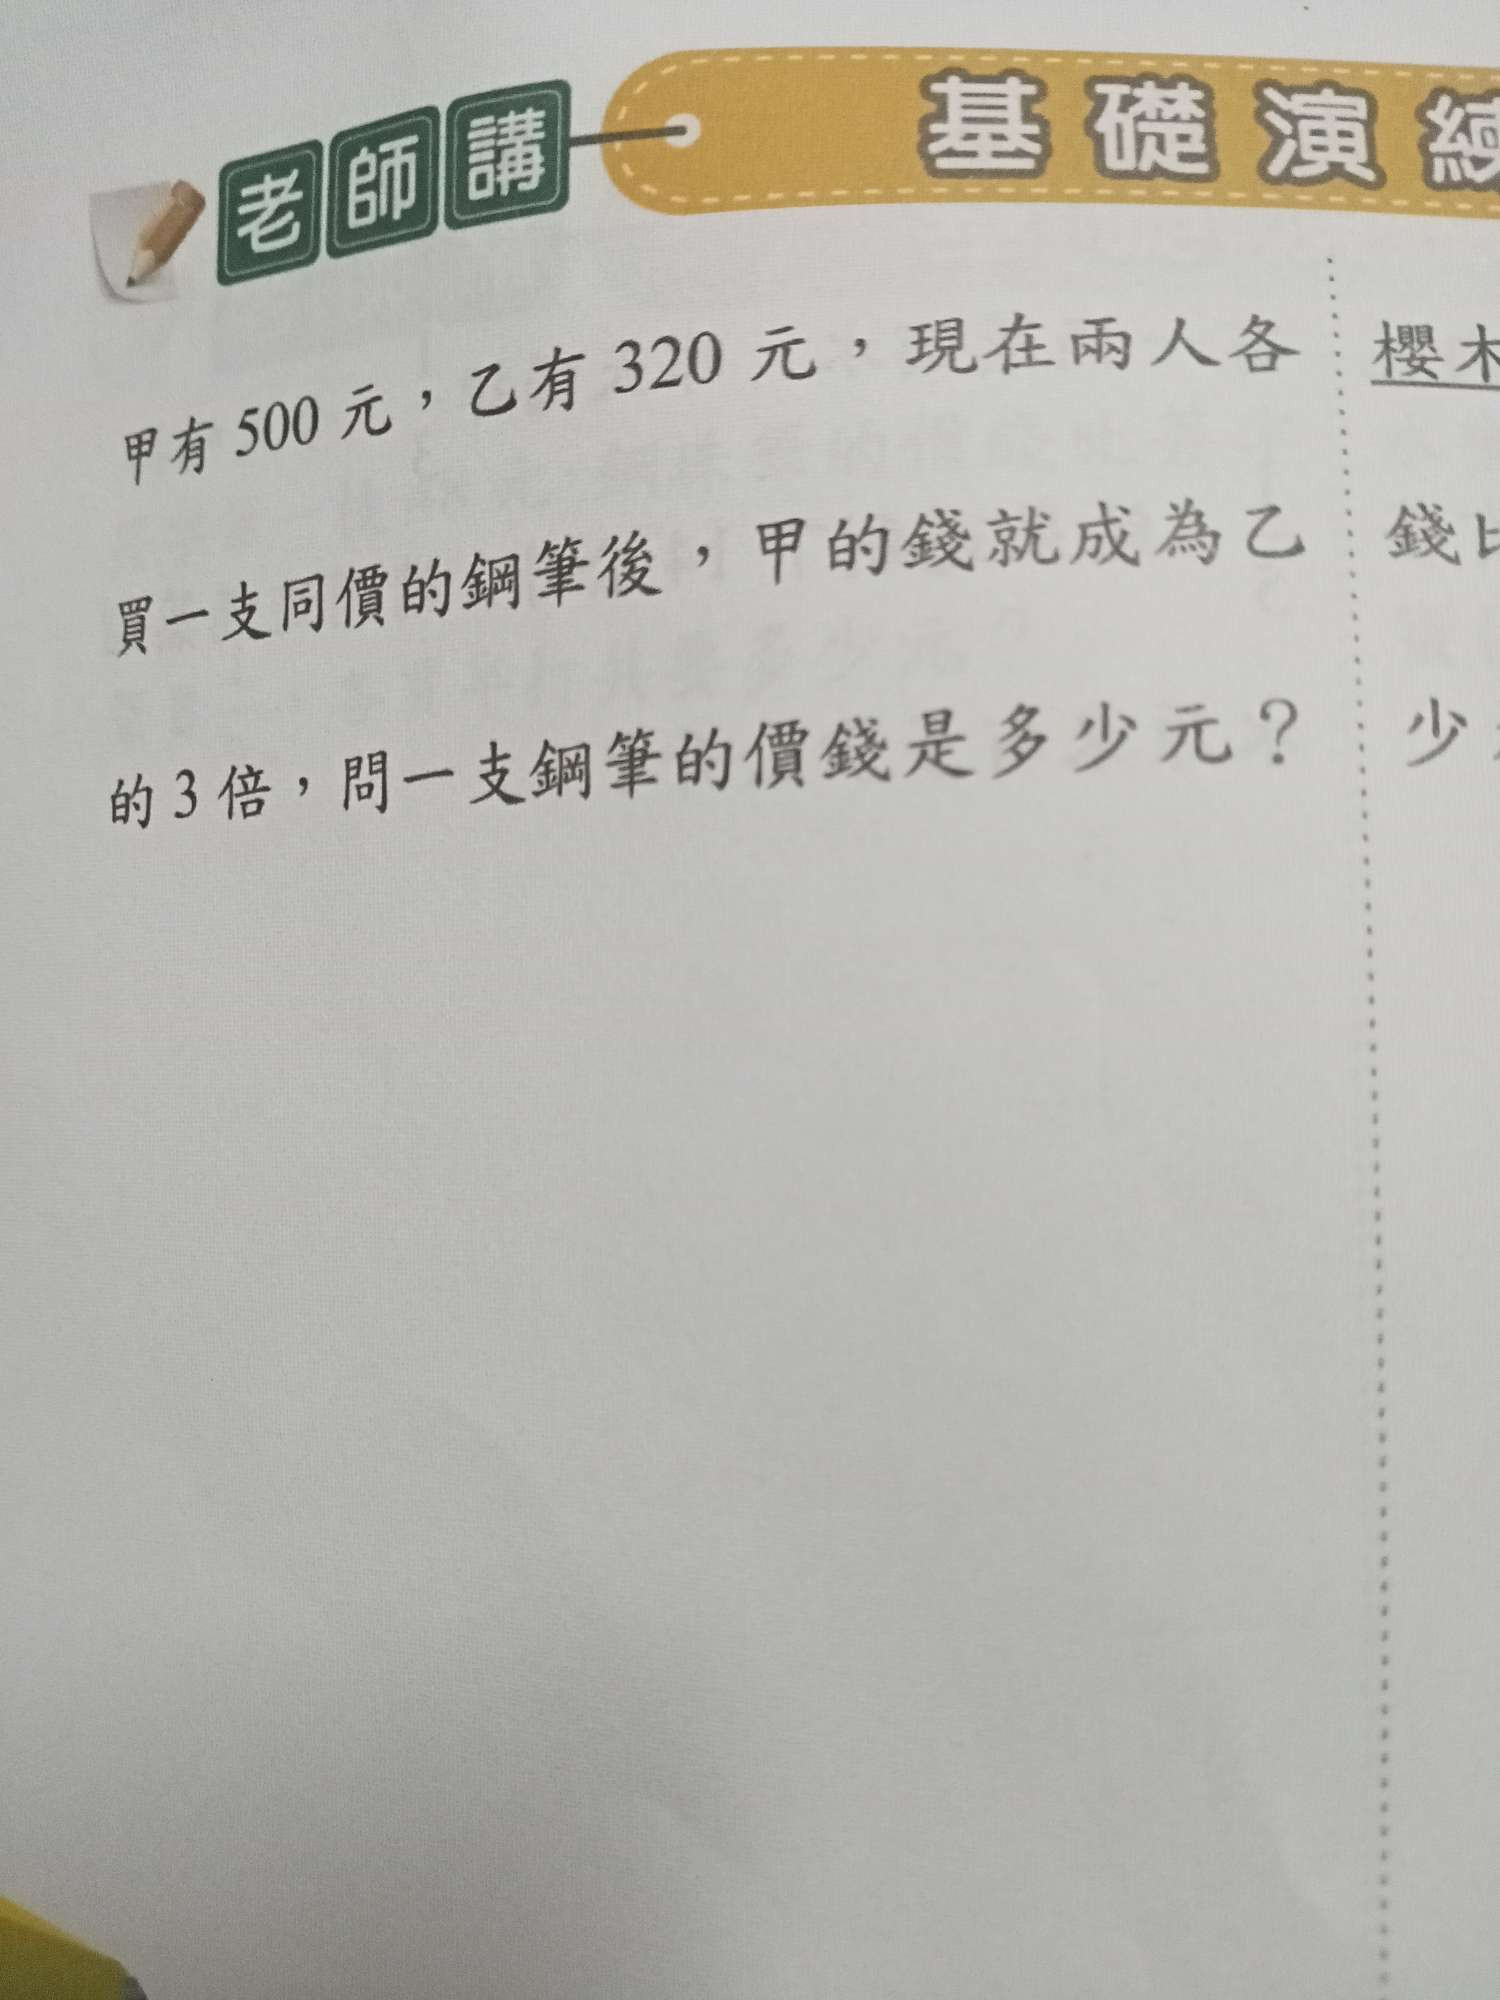 老師講
基礎演練
甲有 500 元，乙有 320 元，現在兩人各
買一支同價的鋼筆後，甲的錢就成為乙
的 3 倍，問一支鋼筆的價錢是多少元？
櫻木
錢比
少